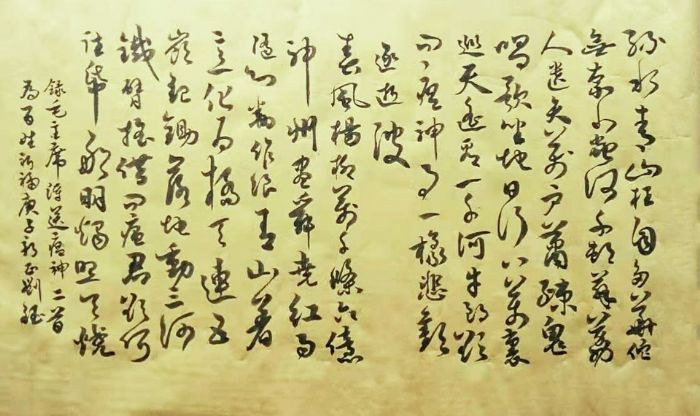 綠水青山枉自多華佗
無奈小蟲何千村薜荔
人遺矢萬戶蕭疎鬼
唱歌坐地日行八萬裏
巡天遙看一千河牛郎欲
問瘟神事一樣悲歡
逐逝波
春風楊柳萬千條六億
神州盡舜堯紅雨
隨心翻作浪青山著
意化為橋天連五
嶺銀鋤落地動三河
鐵臂搖借問瘟君欲何
往紙船明燭照天燒
錄毛主席詩送瘟神二首
為百姓祈福庚子新正劉